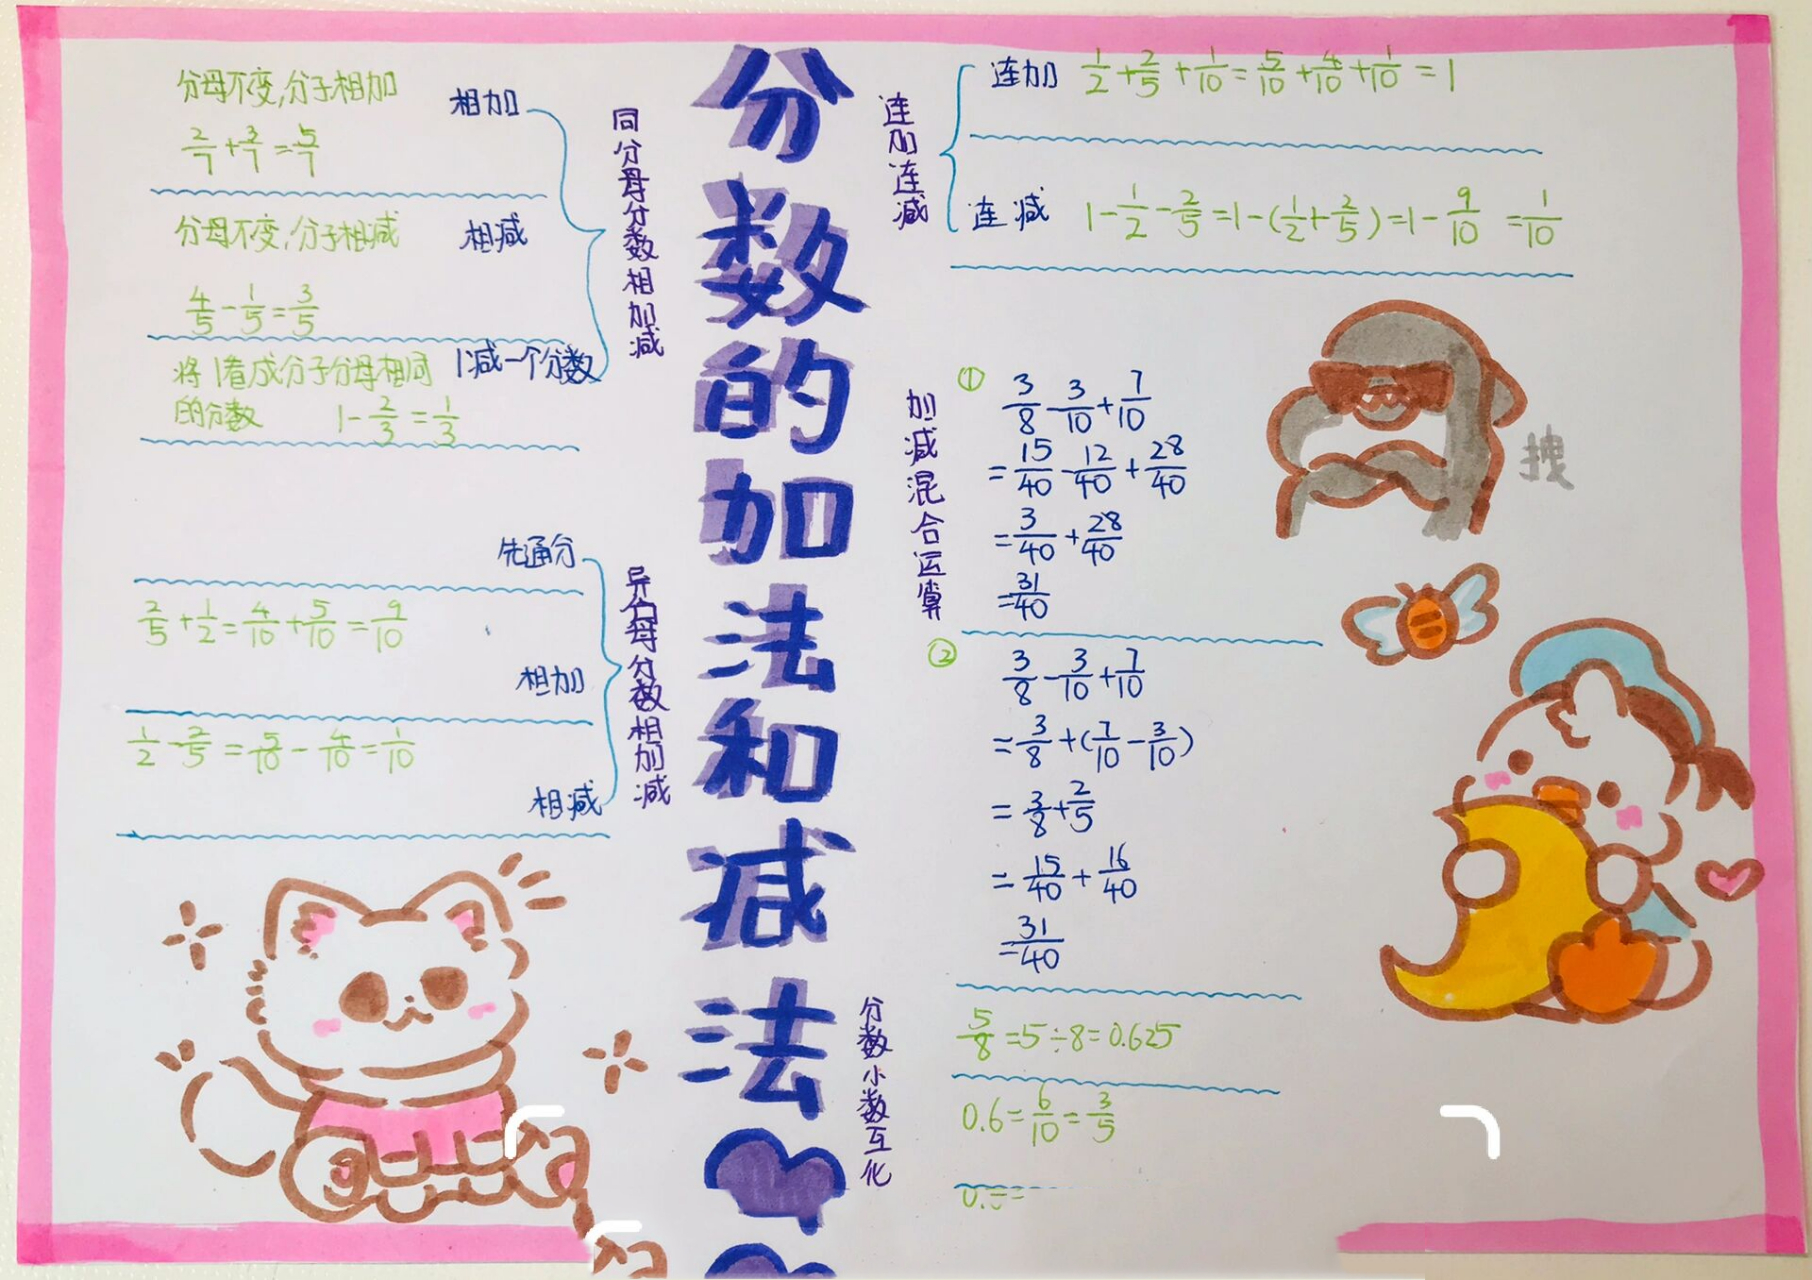 分数的加法和减法
同分母分数相加减
相加
分母不变,分子相加
2/7+3/7=5/7
相减
分母不变,分子相减
4/5-1/5=3/5
1减一个分数
将1看成分子分母相同
的分数 1-2/3=1/3
异分母分数相加减
先通分
2/5+1/2=4/10+5/10=9/10
相加
1/2-2/5=5/10-4/10=1/10
相减
连加连减
连加 1/2+2/5+1/10=5/10+4/10+1/10=1
连减 1-1/2-2/5=1-(1/2+2/5)=1-9/10=1/10
加减混合运算
① 3/8-3/10+7/10
=15/40-12/40+28/40
=3/40+28/40
=31/40
② 3/8-3/10+7/10
=3/8+(7/10-3/10)
=3/8+2/5
=15/40+16/40
=31/40
拽
分数小数互化
5/8=5÷8=0.625
0.6=6/10=3/5